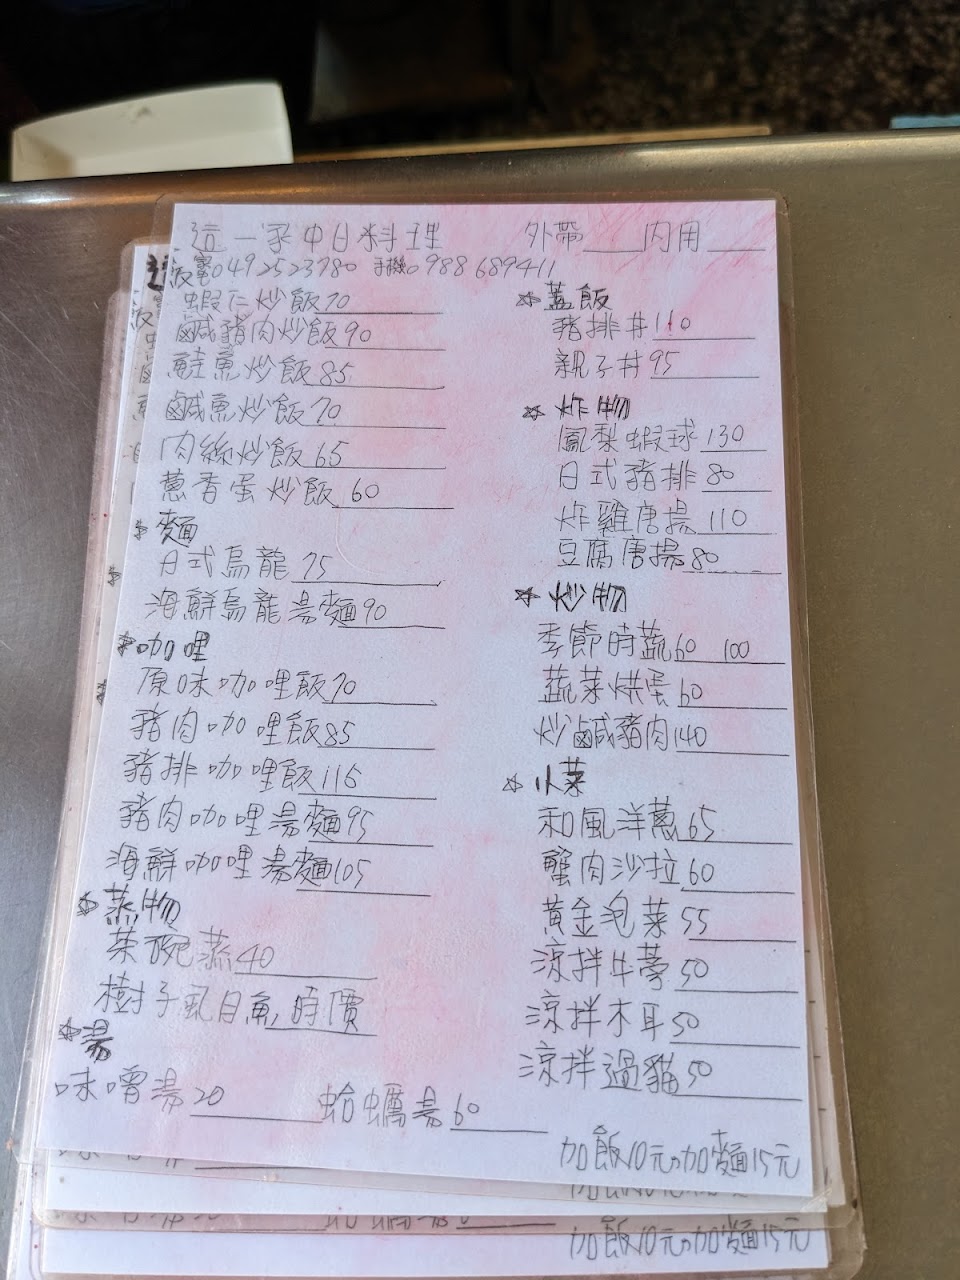 這一家中日料理 外帶___內用___
電0492523780 手機0988689411
飯
蝦仁炒飯70
鹹豬肉炒飯90
鮭魚炒飯85
鹹魚炒飯70
肉絲炒飯65
蔥香蛋炒飯60
☆麵
日式烏龍75
海鮮烏龍湯麵90
☆咖哩
原味咖哩飯70
豬肉咖哩飯85
豬排咖哩飯115
豬肉咖哩湯麵95
海鮮咖哩湯麵105
☆蒸物
茶碗蒸40
樹子虱目魚時價
☆湯
味噌湯20 蛤蠣湯60
☆蓋飯
豬排丼110
親子丼95
☆炸物
鳳梨蝦球130
日式豬排80
炸雞唐揚110
豆腐唐揚80
☆炒物
季節時蔬60 100
蔬菜烘蛋60
炒鹹豬肉140
☆小菜
和風洋蔥65
蟹肉沙拉60
黃金泡菜55
涼拌牛蒡50
涼拌木耳50
涼拌過貓50
加飯10元。加麵15元
加飯10元。加麵15元